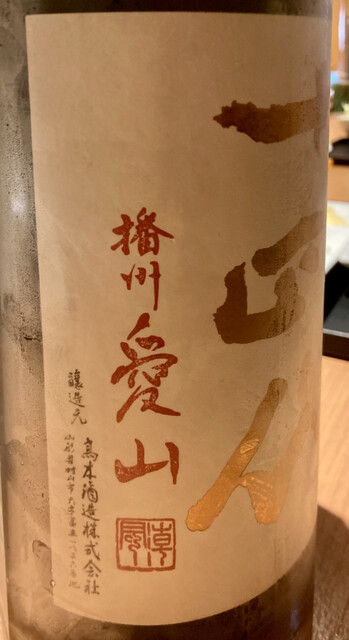 十四代
播州愛山
醸造元
高木酒造株式会社
山形県村山市大字富並一八二六番地